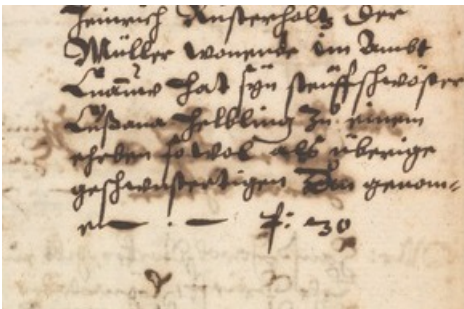 Heinrich Rusterholtz der
Müller wonende im Ambt
hat syn steüffschwöster
Susana Helbling zu einem
eheben sowol als überige
geschwüstertigen genom-
en — . — f: 30